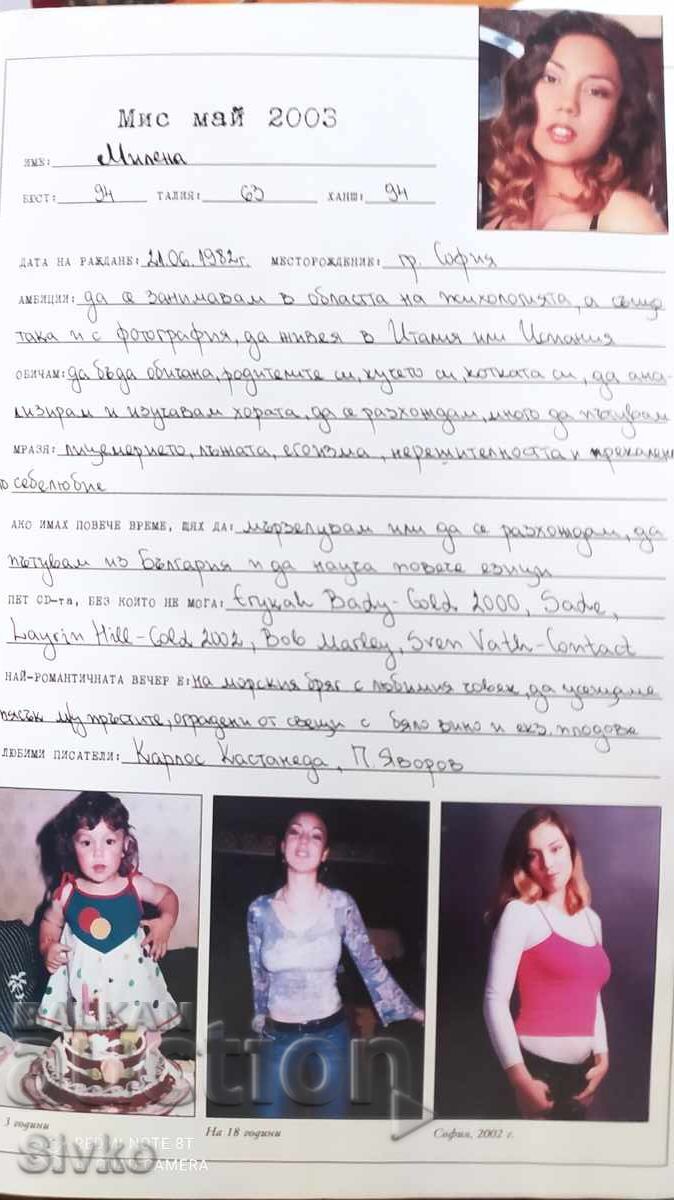 Мис май 2003
ИМЕ: Милена
БЮСТ: 94 ТАЛИЯ: 63 ХАНШ: 94
ДАТА НА РАЖДАНЕ: 21.06.1982г. МЕСТОРОЖДЕНИЕ: гр. София
АМБИЦИИ: да се занимавам в областта на психологията, а също
така и с фотография, да живея в Италия или Испания
ОБИЧАМ: да бъда обичана, родителите си, кучето си, котката си, да ана-
лизирам и изучавам хората, да се разхождам, много да пътувам
МРАЗЯ: лицемерието, лъжата, егоизма, нерешителността и прекален
то себелюбие
АКО ИМАХ ПОВЕЧЕ ВРЕМЕ, ЩЯХ ДА: мързелувам или да се разхождам, да
пътувам из България и да науча повече езици
ПЕТ CD-та, БЕЗ КОИТО НЕ МОГА: Erykah Bady-Gold 2000, Sade,
Layrin Hill-Gold 2002, Bob Marley, Sven Vath-Contact
НАЙ-РОМАНТИЧНАТА ВЕЧЕР Е: на морския бряг с любимия човек, да усещаме
пясък м/у пръстите, оградени от свещи с бяло вино и екз. плодове
ЛЮБИМИ ПИСАТЕЛИ: Карлос Кастанеда, П. Яворов
BALKAN
auction
3 години
На 18 години
София, 2002 г.
REDMI NOTE 8T
CAMERA
Slvko